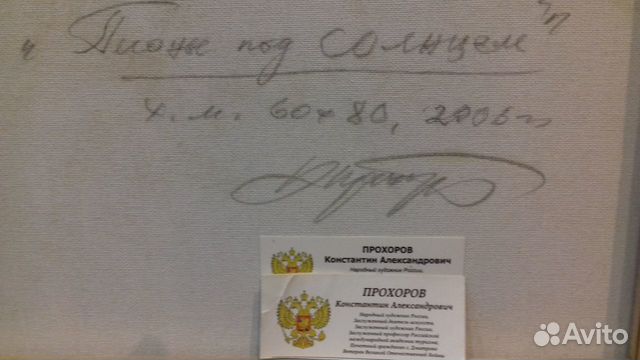 "Пионы под солнцем"
х.м. 60х80, 2006г
ПРОХОРОВ
Константин Александрович
Народный художник России,
ПРОХОРОВ
Константин Александрович
Народный художник России,
Заслуженный деятель искусств,
Заслуженный художник России,
Заслуженный профессор Российской
международной академии туризма,
Почетный гражданин г. Дмитрова
Ветеран Великой Отечественной Войны
Avito